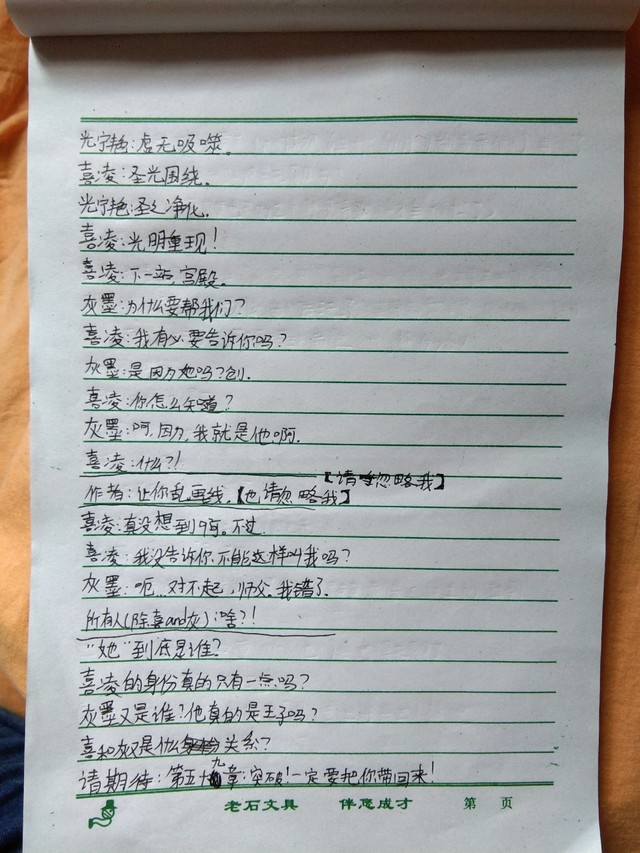 光宁艳:虚无吸噬。
喜凌:圣光围绕。
光宁艳:圣之净化。
喜凌:光明重现!
喜凌:下一站,宫殿。
灰墨:为什么要帮我们?
喜凌:我有必要告诉你吗?
灰墨:是因为她吗?创.
喜凌:你怎么知道?
灰墨:呵,因为,我就是他啊.
喜凌:什么?!
【请忽略我】
作者:让你乱画线,【也请忽略我】
喜凌:真没想到呵。不过
喜凌:我没告诉你不能这样叫我吗?
灰墨:呃...对不起,师父。我错了.
所有人(除喜and灰):啥?!
"她"到底是谁?
喜凌的身份真的只有一点吗?
灰墨又是谁?他真的是王子吗?
喜和灰又是什么关系?
请期待:第五十九章:突破!一定要把你带回来!
老石文具 伴您成才 第 页